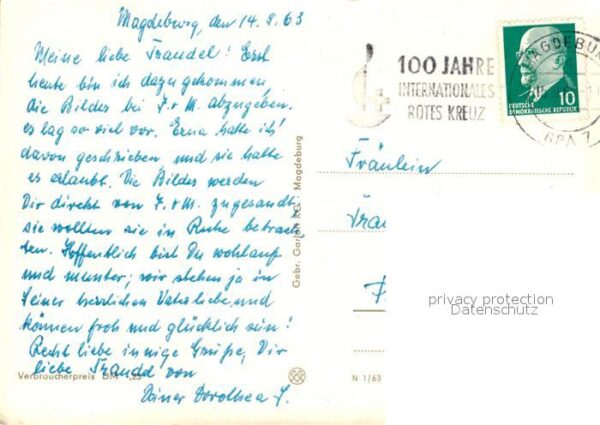 Magdeburg, den 14.8.63
Meine liebe Traudel! Erst
heute bin ich dazu gekommen,
die Bilder bei F. + M. abzugeben.
es lag so viel vor. Erna hatte ich
davon geschrieben und sie hatte
es erlaubt. Die Bilder werden
Dir direkt von F. + M. zugesandt,
sie wollten sie in Ruhe betrach-
ten. Hoffentlich bist Du wohlauf
und munter; wir stehen ja in
Seiner herrlichen Vaterliebe und
können froh und glücklich sein!
Recht liebe innige Grüße, Dir
liebe Traudel von
Deiner Dorothea J.
Verbraucherpreis DM -,25
Gebr. Garloff KG. Magdeburg
N 1/63
100 JAHRE
INTERNATIONALES
ROTES KREUZ
MAGDEBURG
BPA 7
10
DEUTSCHE
DEMOKRATISCHE REPUBLIK
Fräulein
Trau
privacy protection
Datenschutz